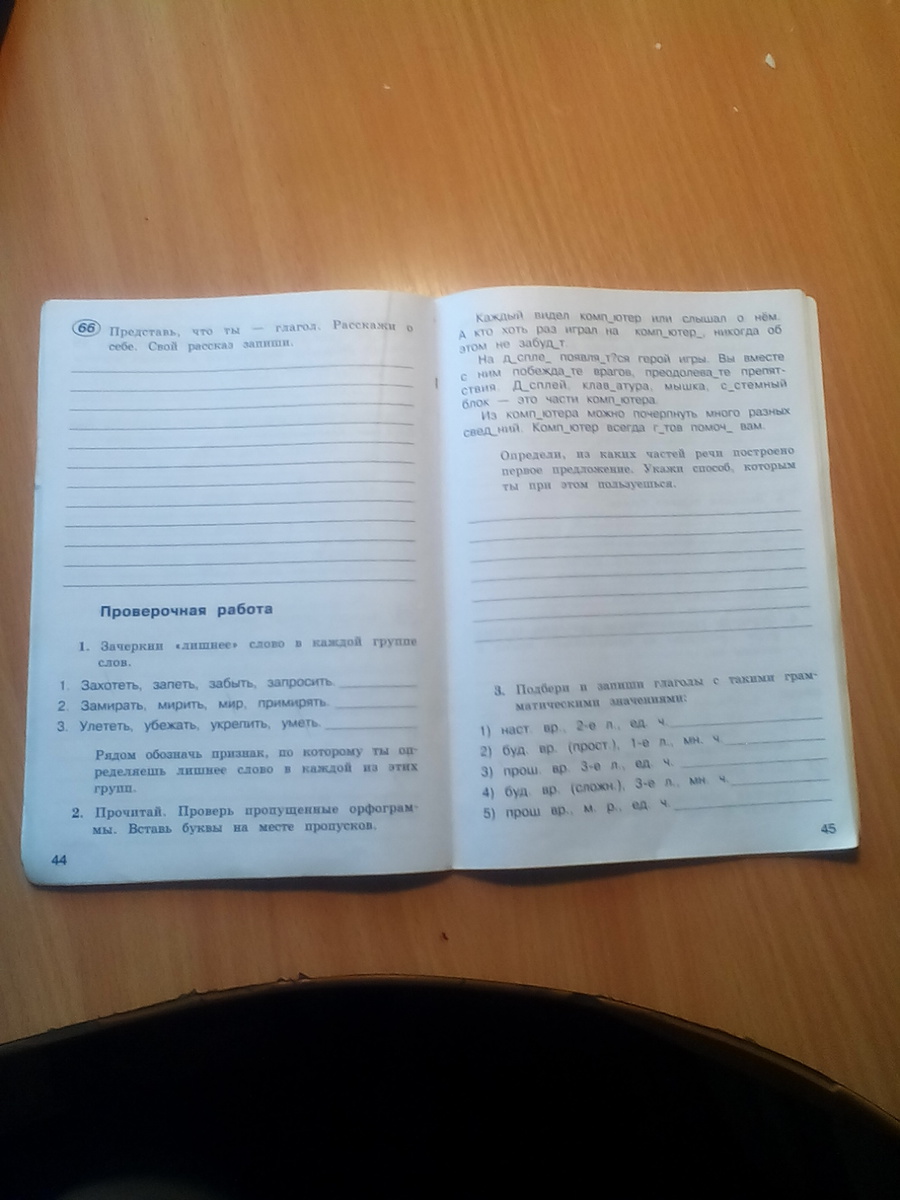 66 Представь, что ты — глагол. Расскажи о
себе. Свой рассказ запиши.
Проверочная работа
1. Зачеркни «лишнее» слово в каждой группе
слов.
1. Захотеть, запеть, забыть, запросить.
2. Замирать, мирить, мир, примирять.
3. Улететь, убежать, укрепить, уметь.
Рядом обозначь признак, по которому ты оп-
ределяешь лишнее слово в каждой из этих
групп.
2. Прочитай. Проверь пропущенные орфограм-
мы. Вставь буквы на месте пропусков.
44
Каждый видел комп_ютер или слышал о нём.
А кто хоть раз играл на комп_ютер_, никогда об
этом не забуд_т.
На д_спле_ появля_т?ся герой игры. Вы вместе
с ним побежда_те врагов, преодолева_те препят-
ствия. Д_сплей, клав_атура, мышка, с_стемный
блок — это части комп_ютера.
Из комп_ютера можно почерпнуть много разных
свед_ний. Комп_ютер всегда г_тов помоч_ вам.
Определи, из каких частей речи построено
первое предложение. Укажи способ, которым
ты при этом пользуешься.
3. Подбери и запиши глаголы с такими грам-
матическими значениями:
1) наст. вр., 2-е л., ед. ч.
2) буд. вр. (прост.), 1-е л., мн. ч.
3) прош. вр. 3-е л., ед. ч.
4) буд. вр. (сложн.), 3-е л., мн. ч.
5) прош вр., м. р., ед. ч.
45